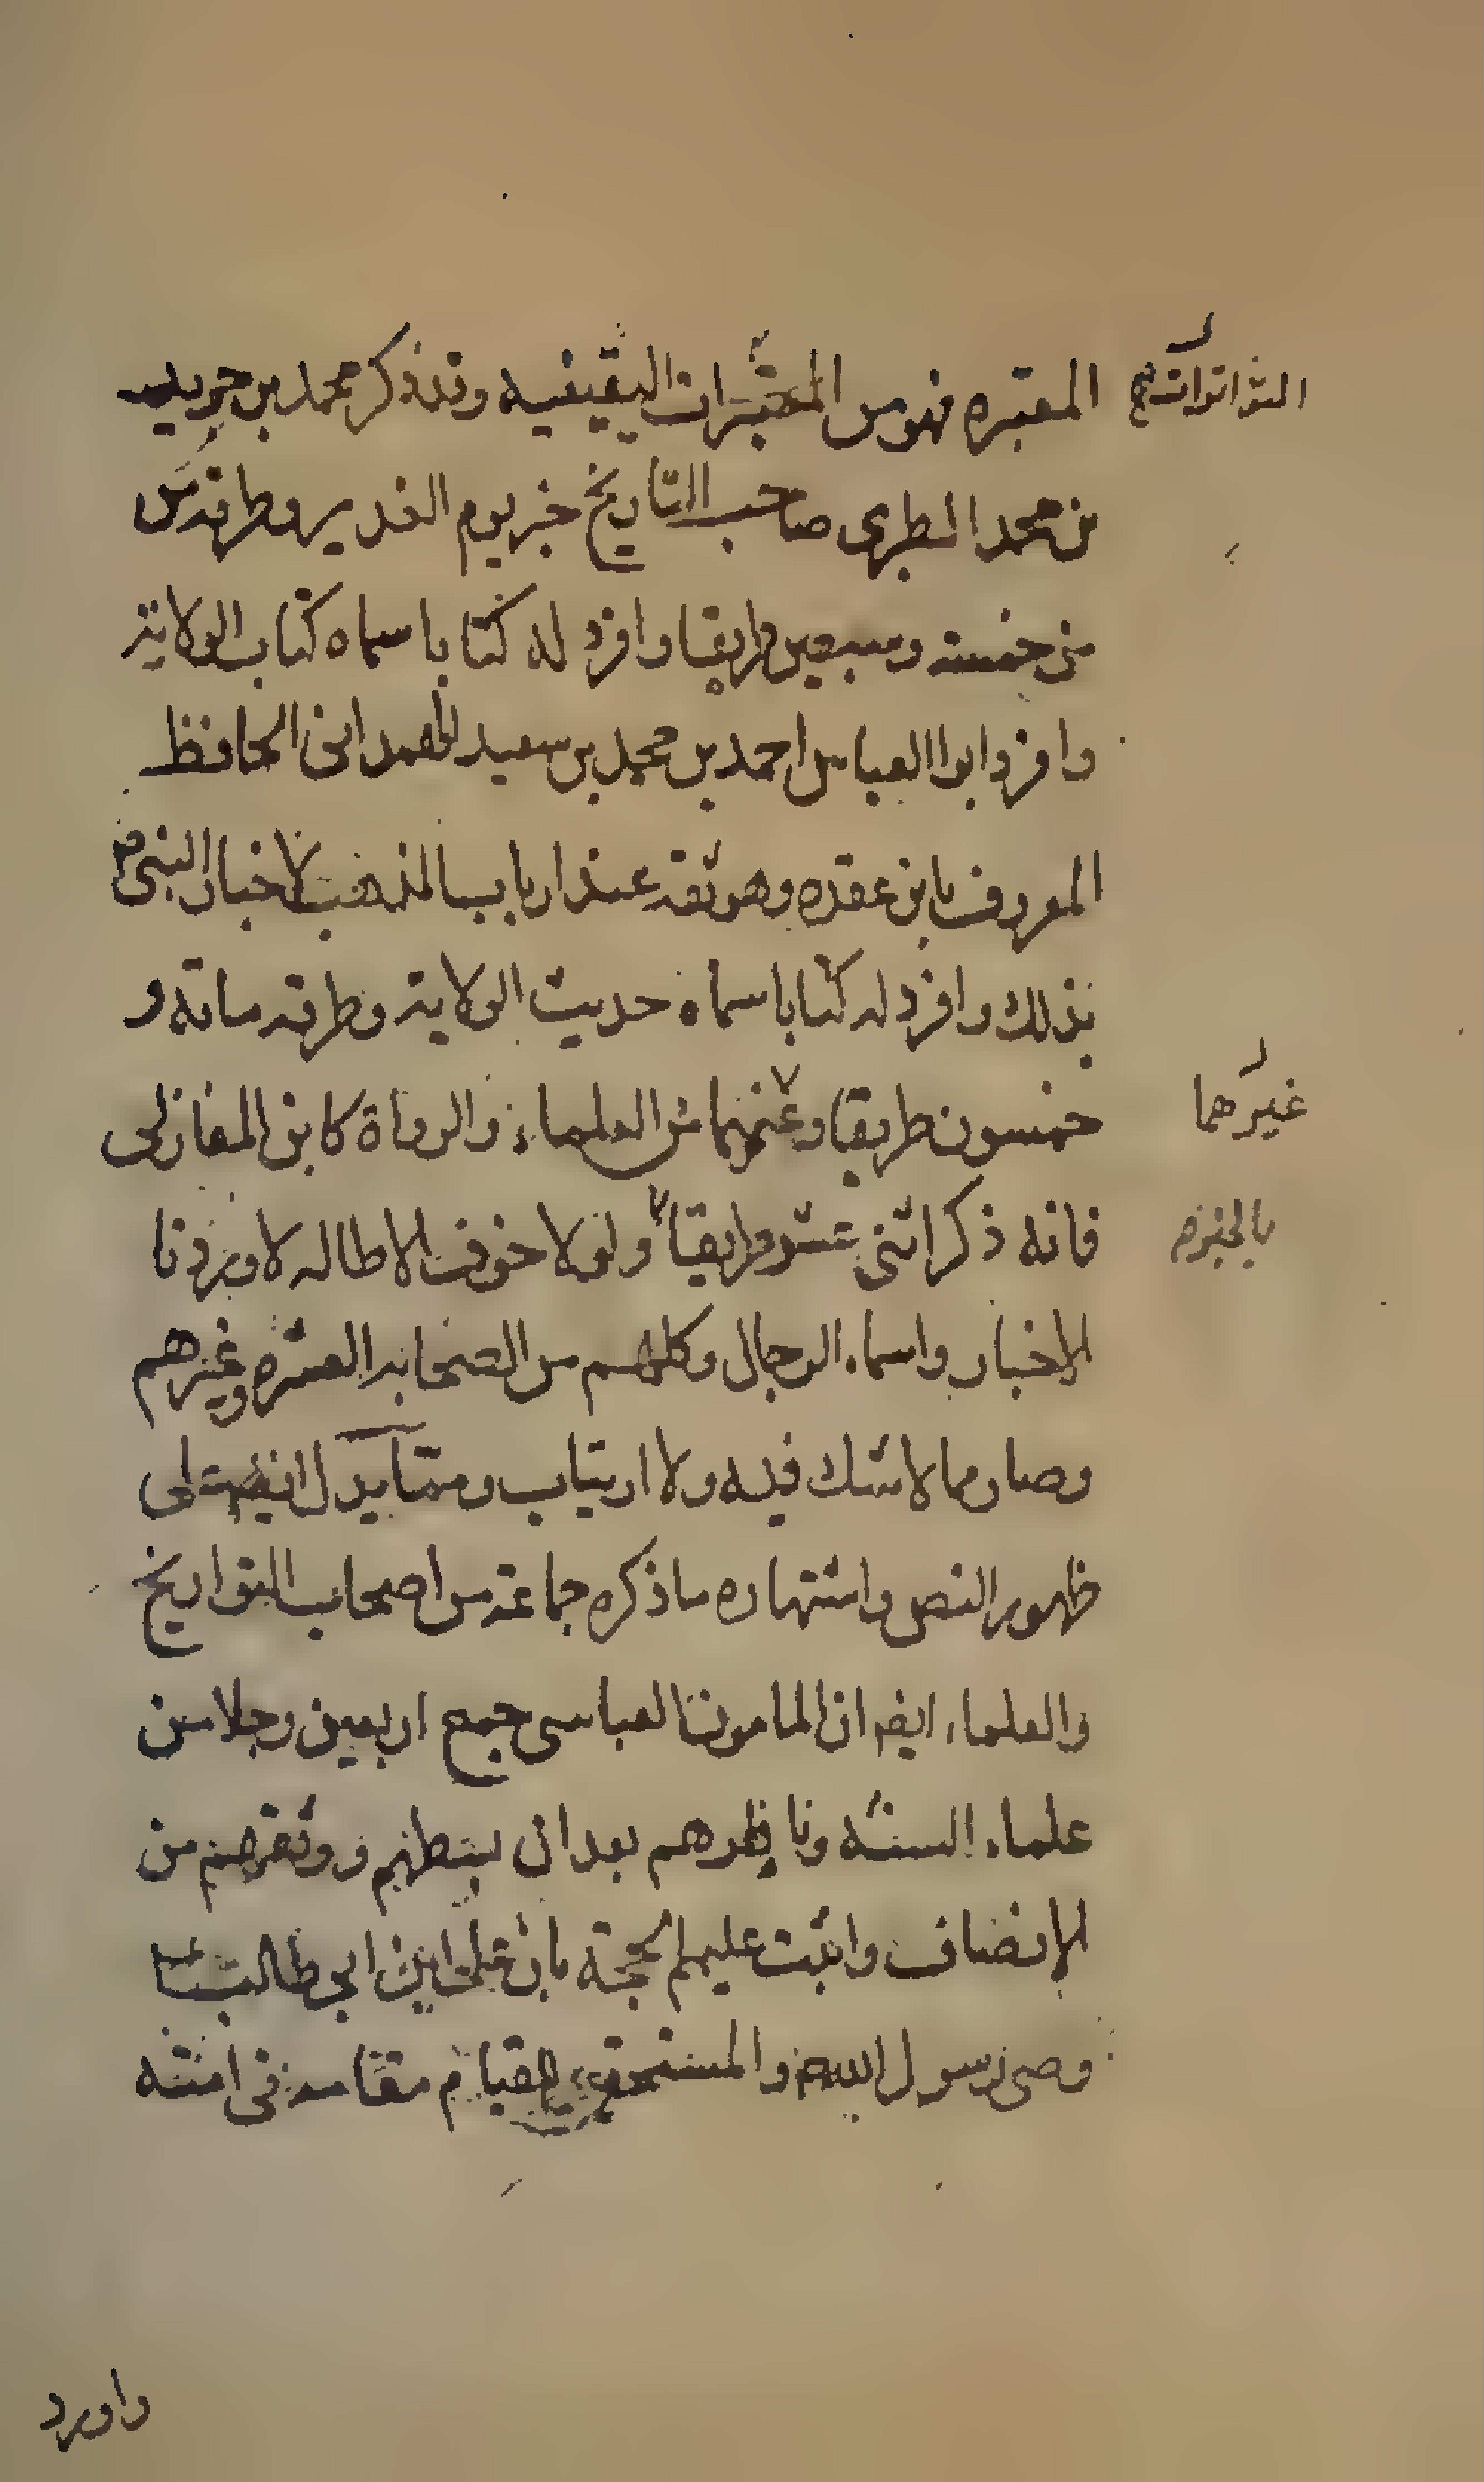 المعتبره فهو من المخبرات اليقينيه وقد ذكر محمد بن جرير
المتواترات صح
بن محمد الطبرى صاحب التاريخ خبر يوم الغدير وطرقه من
من خمسة وسبعين طريقا وافرد له كتابا سماه كتاب الولاية
وافرد ابوا العباس احمد بن محمد بن سعيد الهمدانى الحافظ
المعروف بابن عقده وهو ثقه عند ارباب المذهب لاخبار النبى ص
بذلك وافرد له كتابا سماه حديث الولاية وطرقه مائة و
خمسون طريقا وغيرهما من العلماء والرواة كابن المغازلى
غيرهما
فانه ذكر اثنى عشر طريقا ولولا خوف الاطاله لاوردنا
بالجزم
الاخبار واسماء الرجال وكلهم من الصحابه العشره وغيرهم
وصار مما لا شك فيه ولا ارتياب ومما يدل ايضا على
ظهور النص واشتهاره ما ذكره جماعة من اصحاب التواريخ
والعلماء ايضا ان المامون العباسى جمع اربعين رجلا من
علماء السنه وناظرهم بعد ان بسطهم ووثقهم من
الانصاف واثبت عليهم الحجة بان على ابن ابى طالب
وصى رسول الله ص والمستحق القيام مقامه فى امته
واورد